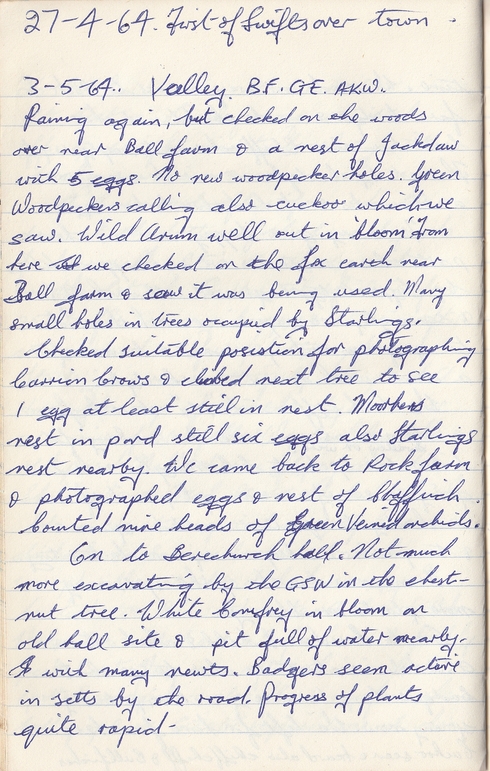 27-4-64. First of Swifts over town -
3-5-64.. Valley. B.F. GE. A.K.W.
Raining again, but checked on the woods
over near Ball farm & a nest of Jackdaw
with 5 eggs. No new woodpecker holes. Green
Woodpeckers calling also cuckoo which we
saw. Wild Arum well out in 'bloom' From
here we checked on the fox earth near
Ball farm & saw it was being used. Many
small holes in trees occupid by Starlings.
Checked suitable position for photographing
Carrion Crows & climbed next tree to see
1 egg at least still in nest. Moorhens
nest in pond still six eggs also Starlings
nest nearby. We came back to Rock farm
& photographed eggs & nest of Chaffinch.
Counted nine heads of Green Veined orchids.
On to Berechurch hall. Not much
more excavating by the GSW in the chest-
nut tree. White Comfrey in bloom on
old hall site & pit full of water nearby.
with many newts. Badgers seem active
in setts by the road. Progress of plants
quite rapid -